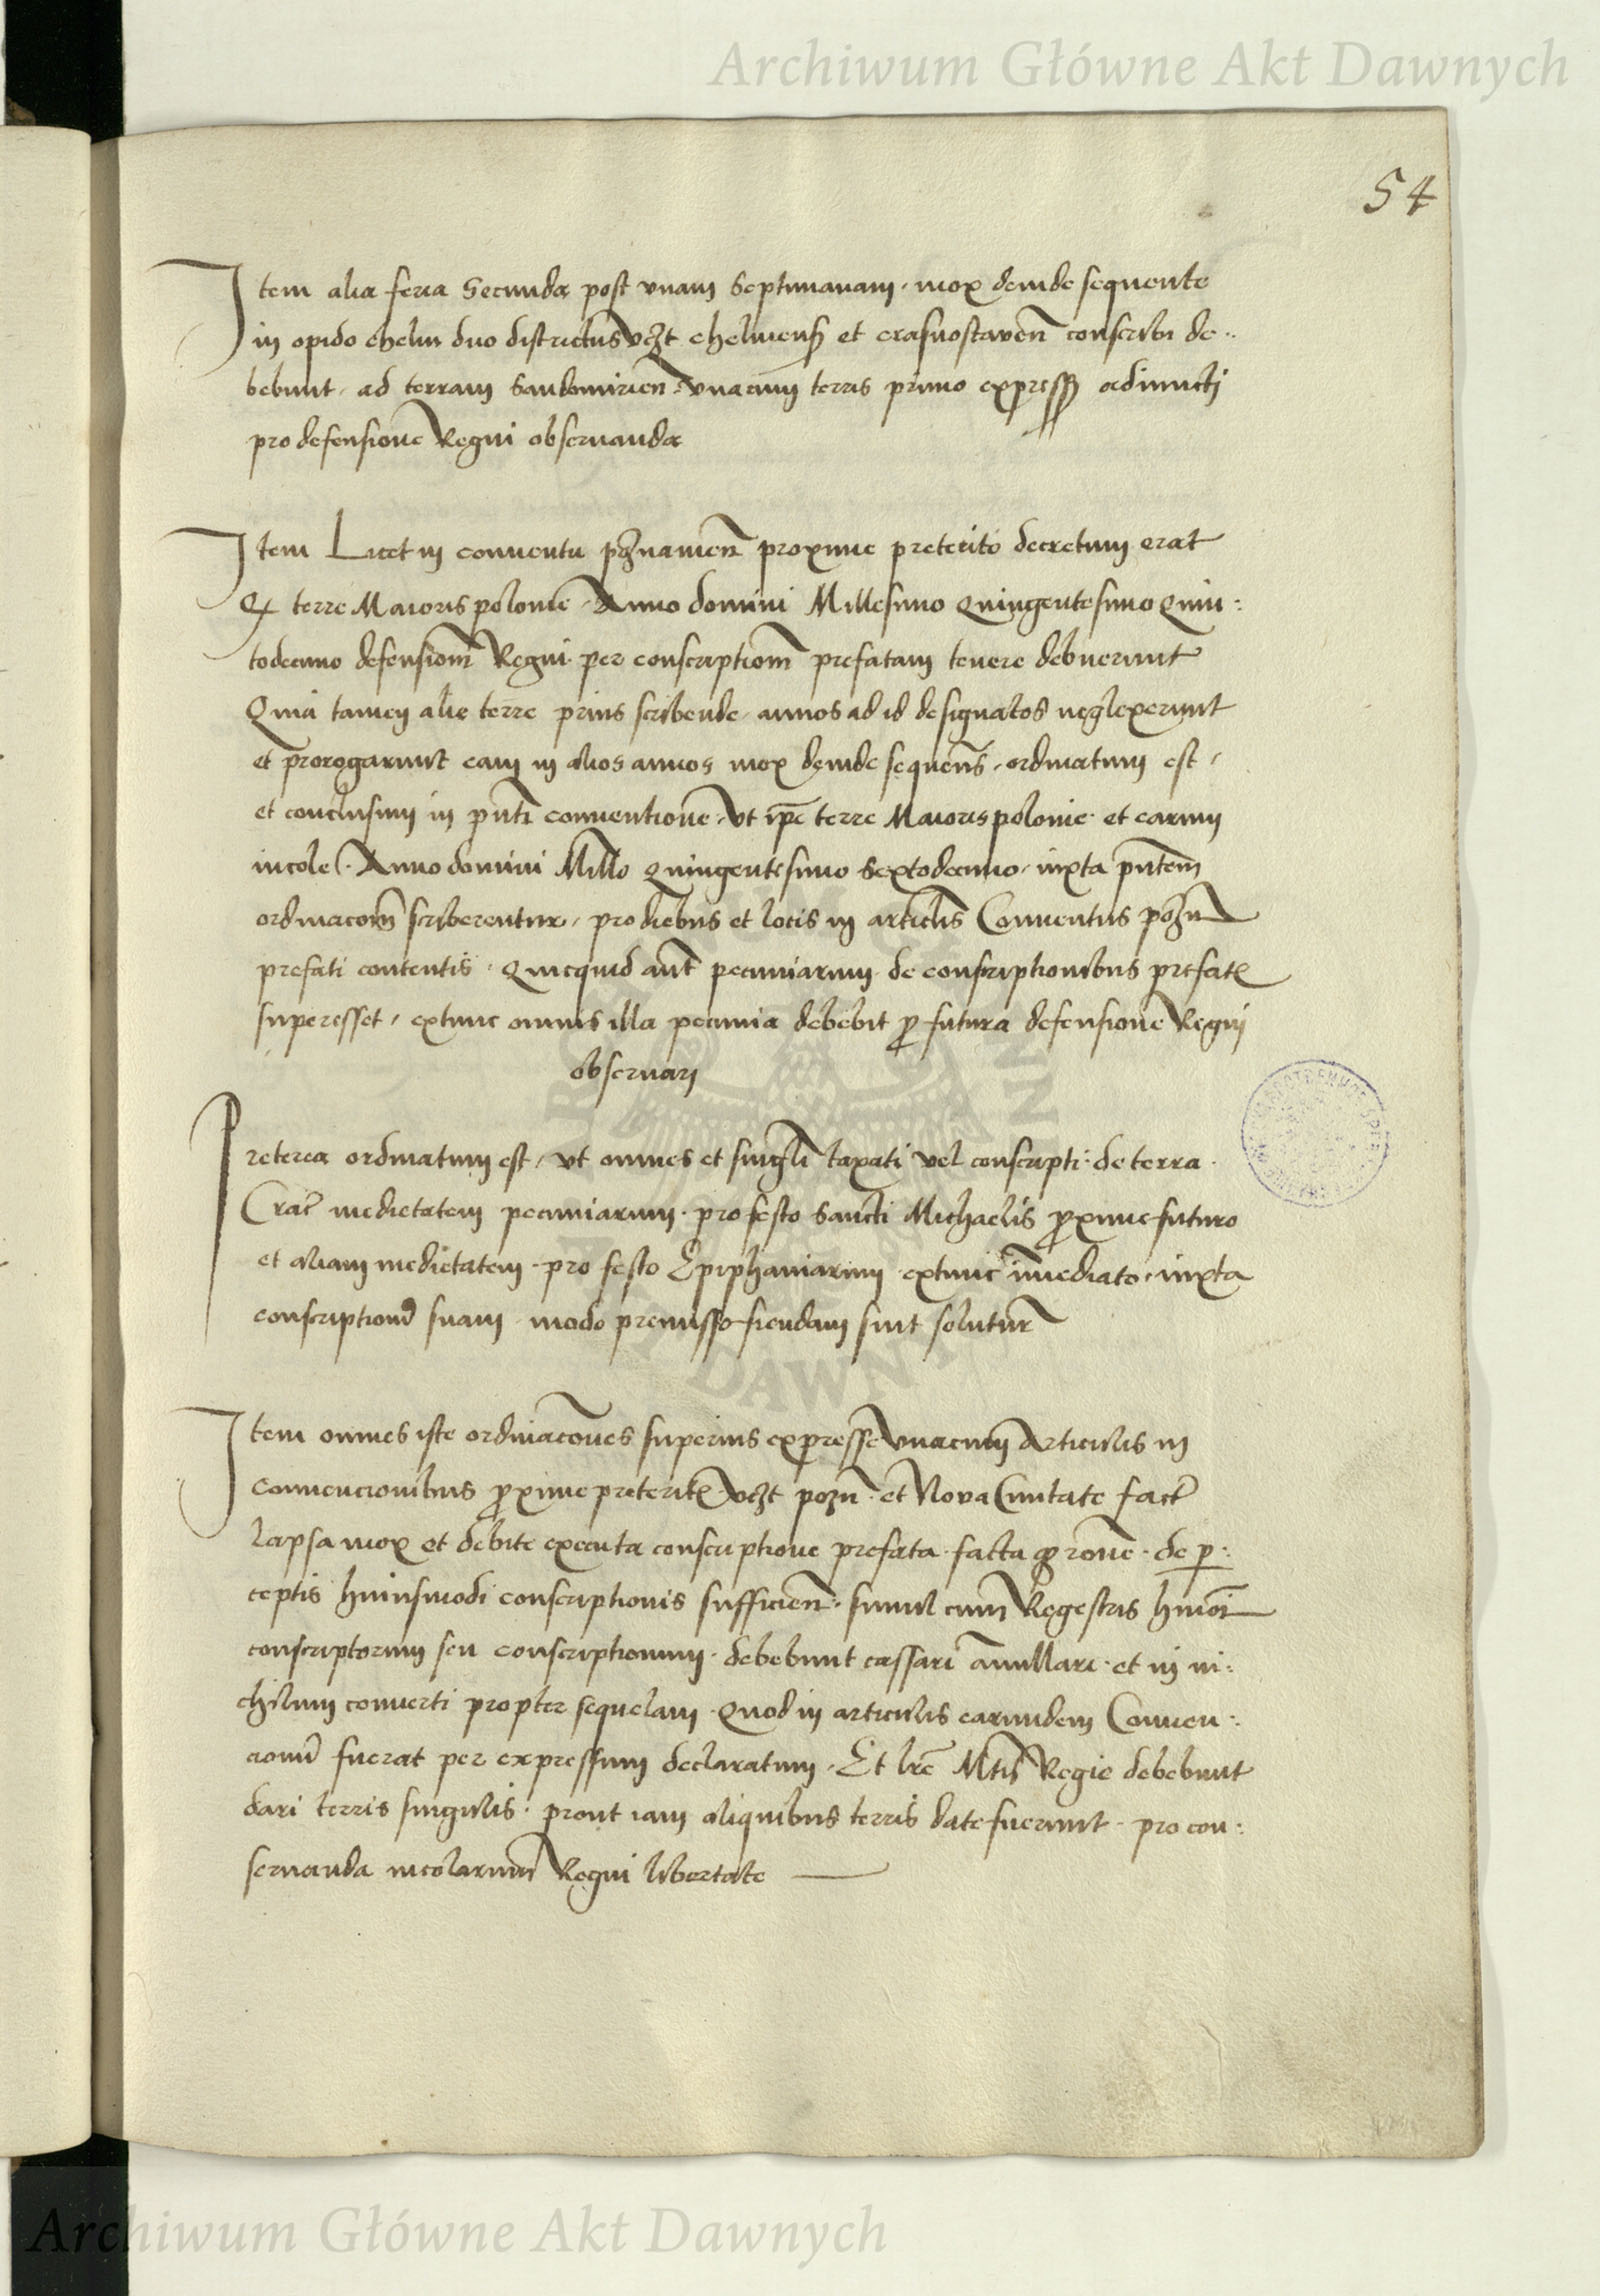 Archiwum Główne Akt Dawnych
54
Item alia feria Secunda post vnam Septimanam, mox deinde sequente
in opido chelm duo districtus vczt chelmensß et crasnostavieñ conscribi de..
bebunt, ad terram Sandomirien̄, vnacum terris primo expressß adiuncti
pro defensione Regni obseruanda
Item Licet in conuentu pȝnanien̄ proxime preterito decretum erat
Q terre Maioris polonie, Anno domini Millesimo Quingentesimo Quin:
todecimo defensiom̄ Regni per conscriptiom̄ prefatam tenere debuerunt
Quia tamen alie terre prius scribende, annos ad id designatos neglexerunt
et prorogarunt eam in alios annos mox deinde sequen̄s, ordinatum est,
et conclusum in pn̄ti conuentione, vt ip̄e terre Maioris polonie et earum
incole, Anno domini Millo Quingentesimo Sextodecimo, iuxta pn̄tem
ordinacōm̄ scriberentur, pro diebus et locis in articlis Conuentus pozn̄
prefati contentis, Quicquid aut̄ pecuniarum de conscriptionibus prefatꝭ
superesset, extunc omnis illa pecunia debebit ꝓ futura defensione Regni
obseruari
Preterea ordinatum est, vt omnes et singl̄i taxati vel conscripti de terra
Crac̄ medietatem pecuniarum pro festo Sancti Michaelis ꝓxime futuro
et aliam medietatem pro festo Epiphaniarum extunc im̄ediato, iuxta
conscriptionē suam modo premisso fiendam sint solutur̄
Item omnes iste ordinacōnes superius expresse vnacum Articulis in
conuencionibus ꝓxime preteritꝭ, vczt pozn̄ et Noua Ciuitate fact̄
lapsa mox et debite executa conscriptione prefata facta qꝫ rōne de p:
ceptis huiusmodi conscriptionis sufficien̄, simul cum Regestris hmōi
conscriptorum seu conscriptionum debebunt cassari an̄ullari et in ni:
chilum conuerti propter sequelam Quod in articulis earundem Conuen:
cionū fuerat per expressum declaratum, Et lr̄e Mt̄is Regie debebunt
dari terris singulis, prout iam aliquibus terris date fuerunt, pro con:
seruanda incolarum Regni libertate
Archiwum Główne Akt Dawnych